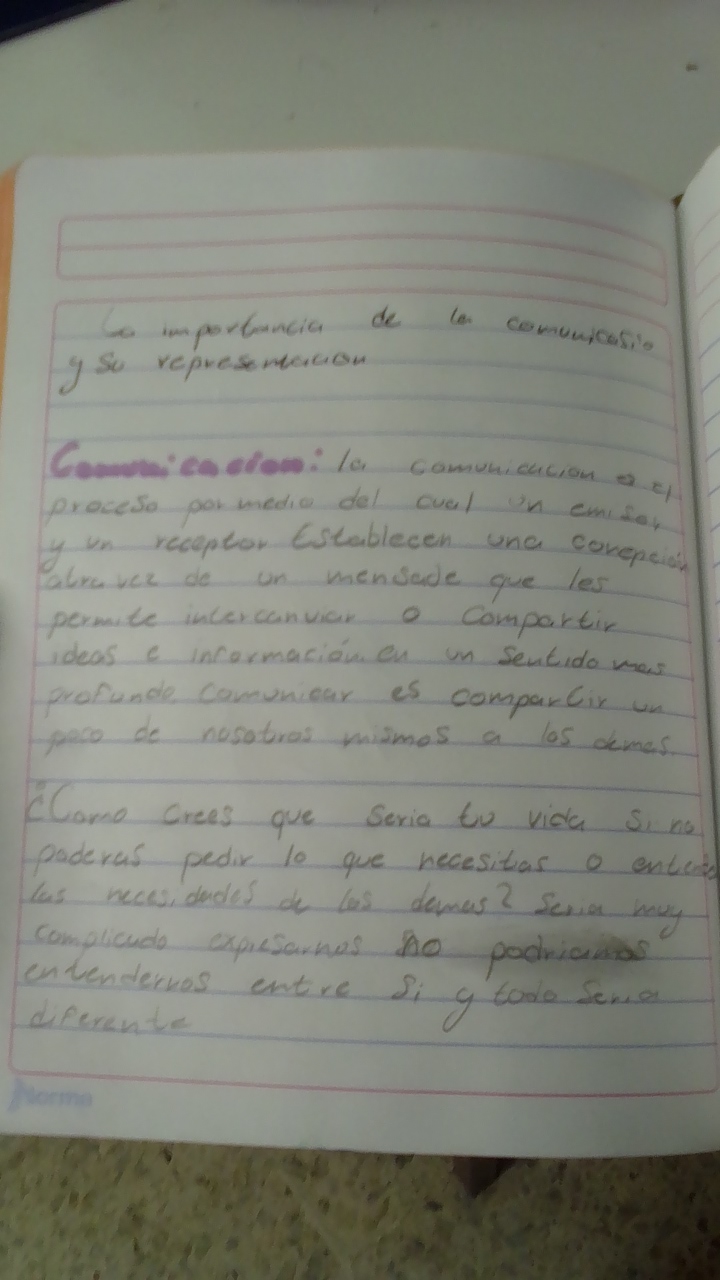 La importancia de la comunicasio
y su representacion
Comunicacion: la comunicacion es el
proceso por medio del cual un emisor
y un receptor Establecen una
atravez de un mensade que les
permite intercanviar o compartir
ideas e información. en un sentido mas
profundo, comunicar es compartir un
poco de nosotros mismos a los demas.
¿Como crees que seria tu vida si no
poderas pedir lo que necesitas o
las necesidades de los demas? Seria muy
complicado expresarnos no podriamos
entendervos entre si y todo seria
diferente
Norma